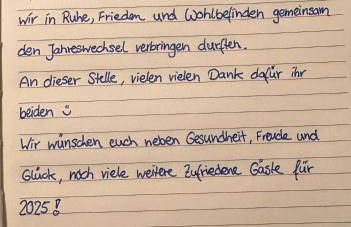 wir in Ruhe, Frieden und Wohlbefinden gemeinsam
den Jahreswechsel verbringen durften.
An dieser Stelle, vielen vielen Dank dafür ihr
beiden ☺
Wir wünschen euch neben Gesundheit, Freude und
Glück, noch viele weitere zufriedene Gäste für
2025!